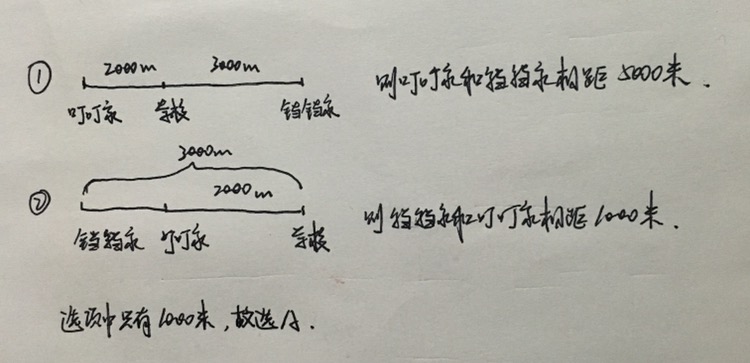 ① 2000m 3000m
叮叮家 学校 铛铛家 则叮叮家和铛铛家相距5000米.
3000m
② 2000m
铛铛家 叮叮家 学校 则铛铛家和叮叮家相距1000米.
选项中只有1000米,故选A.